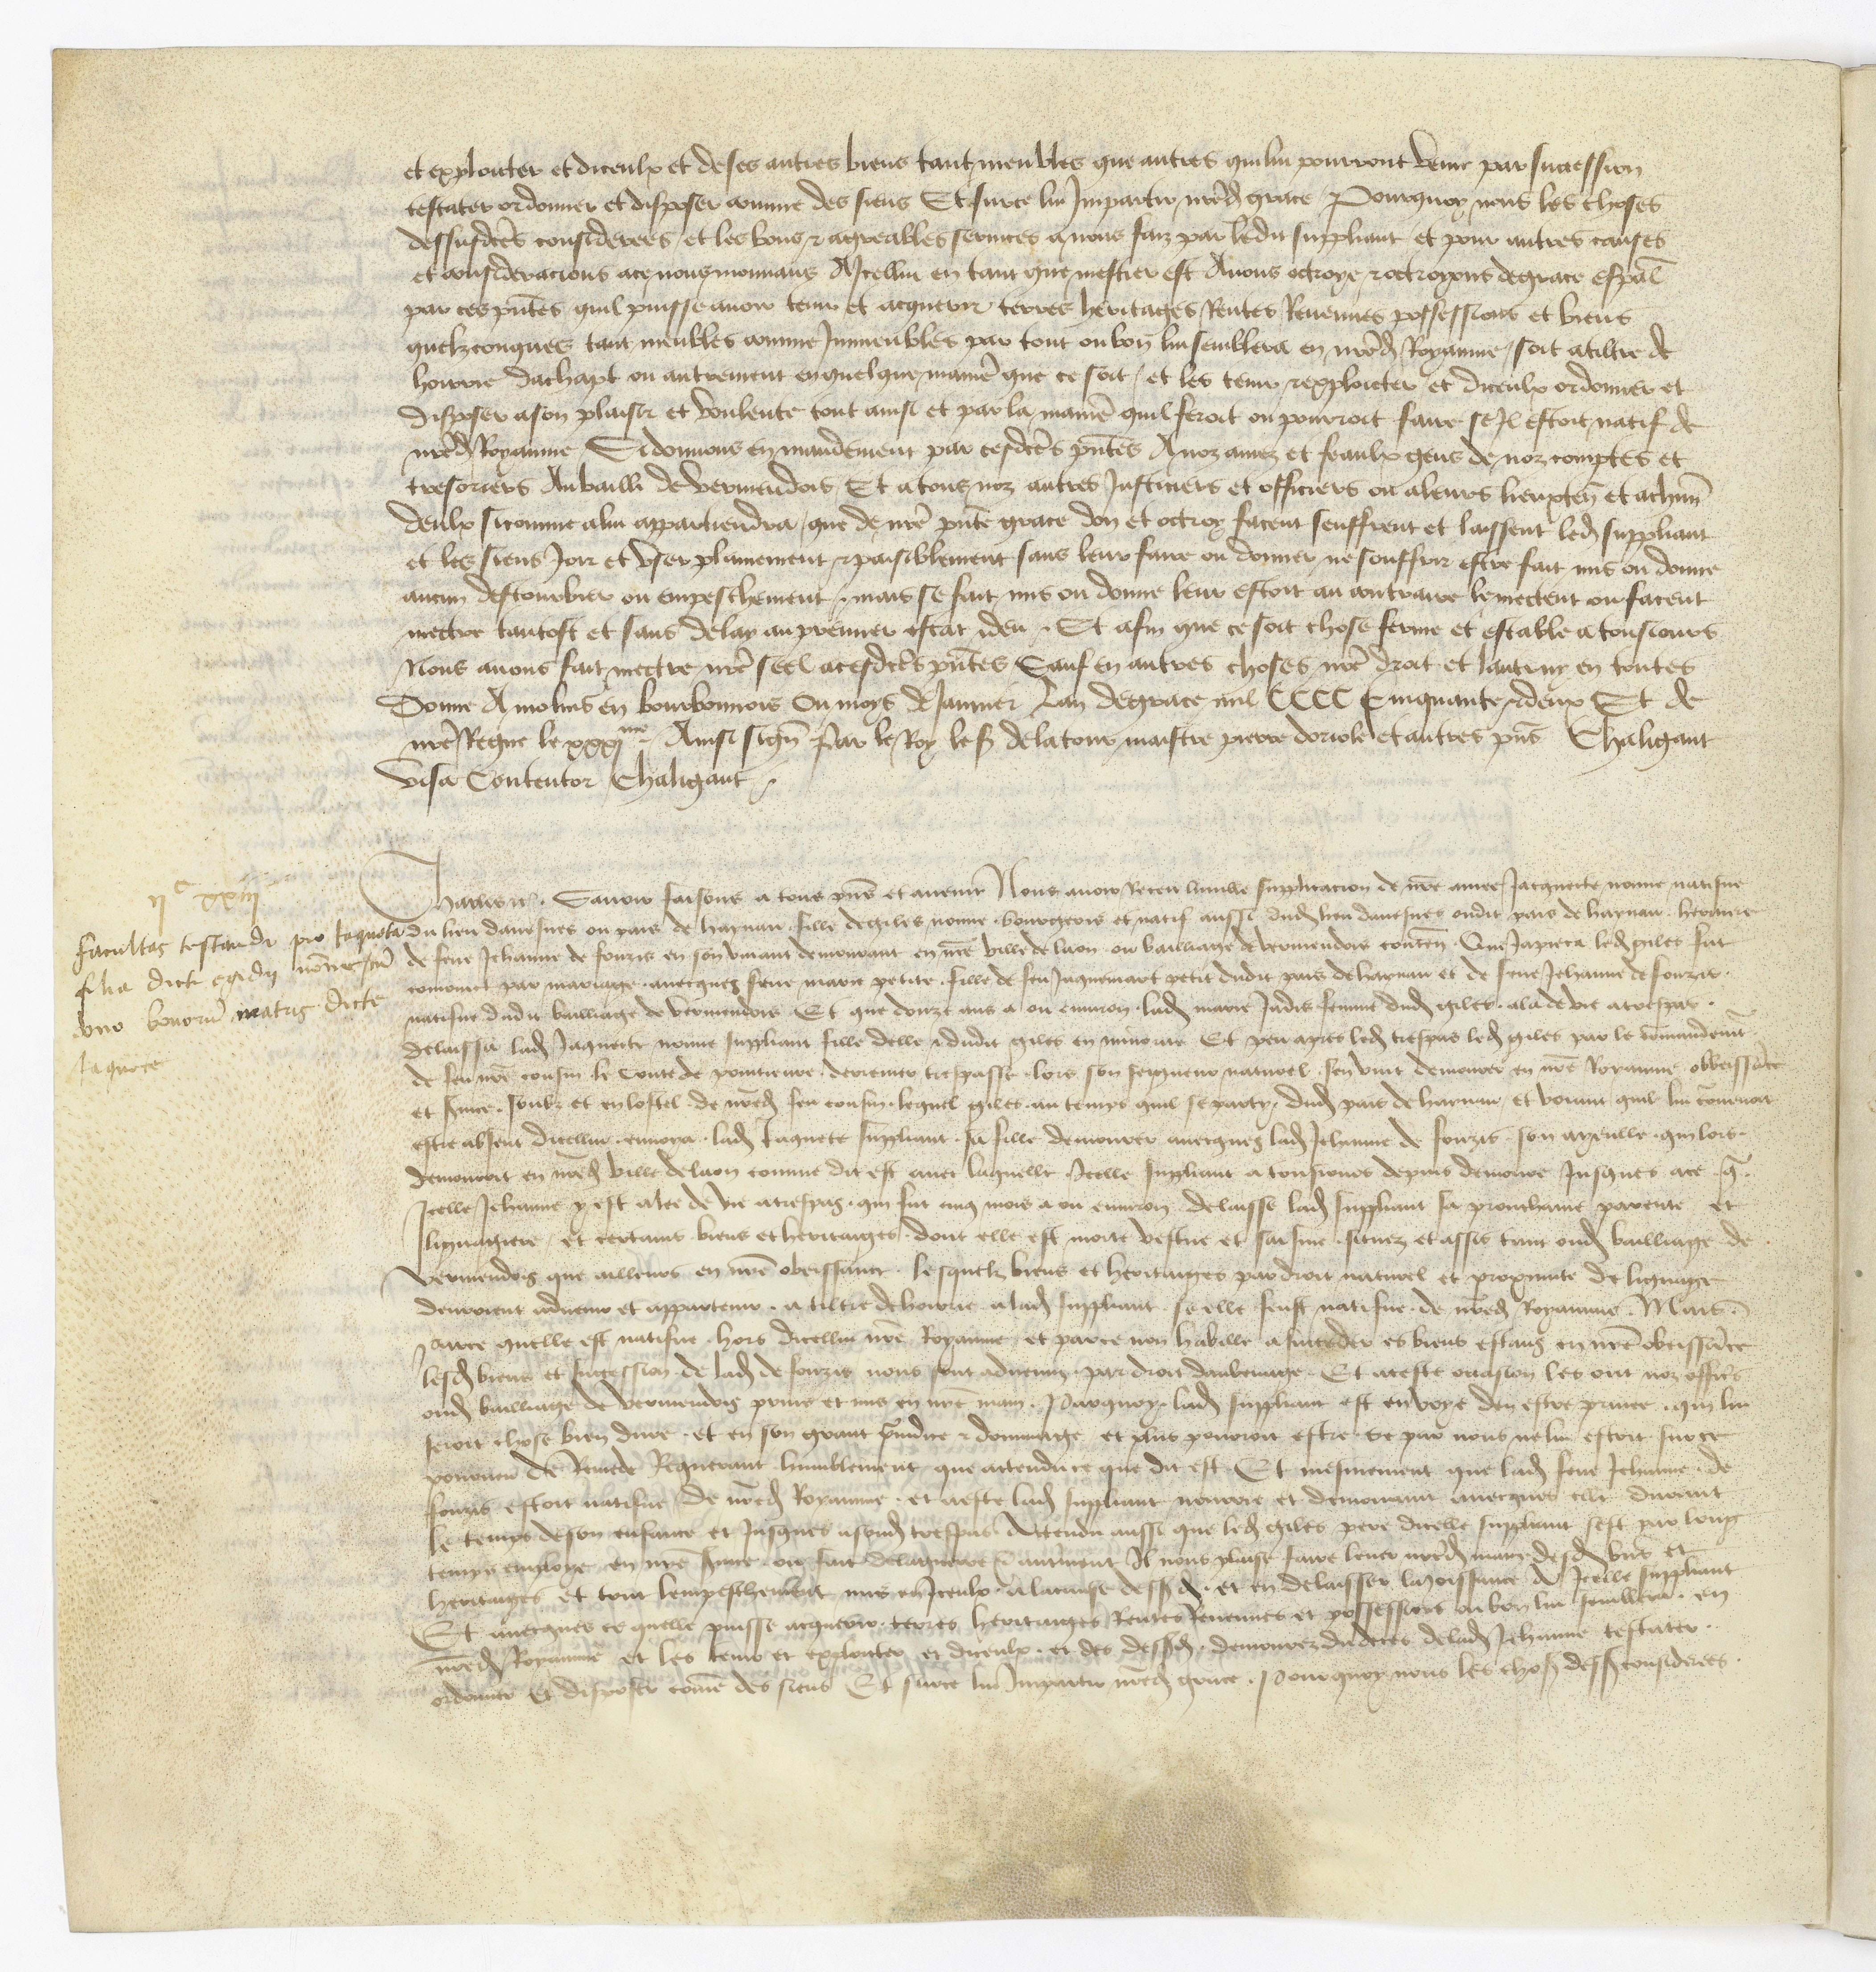 et exploicter et diceulx et de ses autres biens tant meubles que autres qui lui pourront venir par succession
testater ordonner et disposer comme des siens Et surce lui Impartir nred grace Pourquoy nous les choses
dessusdces considerees et les bons & agreables services a nous faiz par ledit suppliant et pour autres causes
et consideracions ace nous mouuans A Icellui en tant que mestier est Auons octroye & octroyons de grace espal
par ces pntes quil puisse auoir tenir et acquerir terres heritages Rentes Reuenues possessions et biens
quelzconques tant meubles comme Immeubles par tout ou bon lui semblera en nred Royaume soit a tiltre de
hoirrie dachapt ou autrement en quelque manie que ce soit et les tenir & exploicter et diceulx ordonner et
disposer a son plaisir et voulente tout ainsi et par la manie quil feroit ou pourroit faire se Il estoit natif de
nred Royaume Si donnons en mandement par cesdces pntes A noz amez et feaulx gens de noz comptes et
tresoriers Au bailli de vermendois Et a tous noz autres Justiciers et officiers ou a leurs lieuxten et achun
deulx si comme a lui appartiendra que de nre pnte grace don et octroy facent seuffrent et laissent led suppliant
et les siens Joir et vser plainement & paisiblement sans leur faire ou donner ne souffrir estre fait mis ou donne
aucun destourbier ou empeschement mais se fait mis ou donne leur estoit au contraire le mectent ou facent
mectre tantost et sans delay au premier estat & deu Et afin que ce soit chose ferme et estable a tousiours
Nous auons fait mectre nre seel a cesdces pntes Sauf en autres choses nre droit et lautruy en toutes
Donne A molins en bourbonnois Ou moys de Januier Lan de grace mil CCCC Cinquante & deux Et de
nre Regne le xxxime Ainsi sign Par le Roy le s de la tour maistre pierre doriole et autres pns Chaligant
visa Contentor Chaligant
IIc xxiii
facultas testandi pro Jaqueta
filia dicti egidii nonne
bonorum matris dicte
Jaquete
Charles &c Sauoir faisons a tous pns et auenir Nous auoir Receu lumble supplicacion de nre amee Jacquecte nonne natifue
du lieu dauesnes ou pais de haynau fille de giles nonne bourgeois et natif aussi dud lieu dauesnes oudit pais de haynau heritiere
de feue Jehanne de fonzis en son viuant demourant en nre ville de laon ou bailliage de vermendois conten Que Ja pieca led giles fut
conioinct par mariage auecques feue marie petite fille de feu Jaquemart petit dudit pais de haynau et de feue Jehanne de fonzis
natifue dudit bailliage de vermendois Et que douze ans a ou enuiron lad marie Jadis femme dud giles ala de vie a trespas
delaissa lad Jaquecte nonne suppliant fille delle & dudit giles en minorite Et peu apres led trespas led giles par le comandement
de feu nre cousin le conte de pointieure derrenier trespasse lors son seigneur naturel sen vint demourer en nre Royaume obbeissance
et seruice soubz et en lostel de nred feu cousin lequel giles au temps quil se party dud pais de haynau et voiant quil lui conuenoit
estre absent dicellui enuoya lad Jaquete suppliant sa fille demourer auecques lad Jehanne de fonzis son ayeulle qui lors
demouroit en nred ville de laon comme dit est auec laquelle Icelle suppliant a tousiours depuis demoure Jusques ace q
Icelle Jehanne y est alee de vie a trespas qui fut cinq mois a ou enuiron delaisse lad suppliant sa prouchaine parente et
lignagiere et certains biens et heritaiges dont elle est morte vestue et saisine situez et assis tant oud bailliage de
vermendois que ailleurs en nre obeissance lesquelz biens et heritaiges par droit naturel et proximite de lignage
deuroient aduenir et appartenir a tiltre de hoirie a lad suppliant se elle feust natifue de nred Royaume Mais
parce quelle est natifue hors dicellui nre Royaume et parce non habille a succeder es biens estans en nre obeissance
lesd biens et succession de lad de fonzis nous sont aduenuz par droit daubenage Et a ceste occasion les ont noz officiers
oud bailliage de vermendois prins et mis en nre main Parquoy lad suppliant est en voye den estre priuee qui lui
seroit chose bien dure et en son grant preiudice & dommaige et plus pourroit estre se par nous ne lui estoit surce
pourueu de Remede Requerant humblement que attendu ce que dit est Et mesmement que lad feue Jehanne de
fonzis estoit natifue de nred Royaume et a este lad suppliant nourrie et demourant auecques elle durant
le temps de son enfance et Jusques a sond trespas Attendu aussi que led giles pere dicelle suppliant sest par long
temps employe en nre seruice ou fait de la guerre & autrement Il nous plaise faire leuer nred main desd biens et
heritaiges et tout lempeschement mis en Iceulx a la cause dessd et en delaisser la Joissance a Icelle suppliant
Et auecques ce quelle puisse acquerir terres heritaiges Rentes Reuenues et possessions ou bon lui semblera en
nred Royaume et les tenir et exploicter et diceulx et des dessd demourez du deces de lad Jehanne testater
ordonner et disposer comme des siens Et surce lui Impartir nred grace Pourquoy nous les choses dess considerees